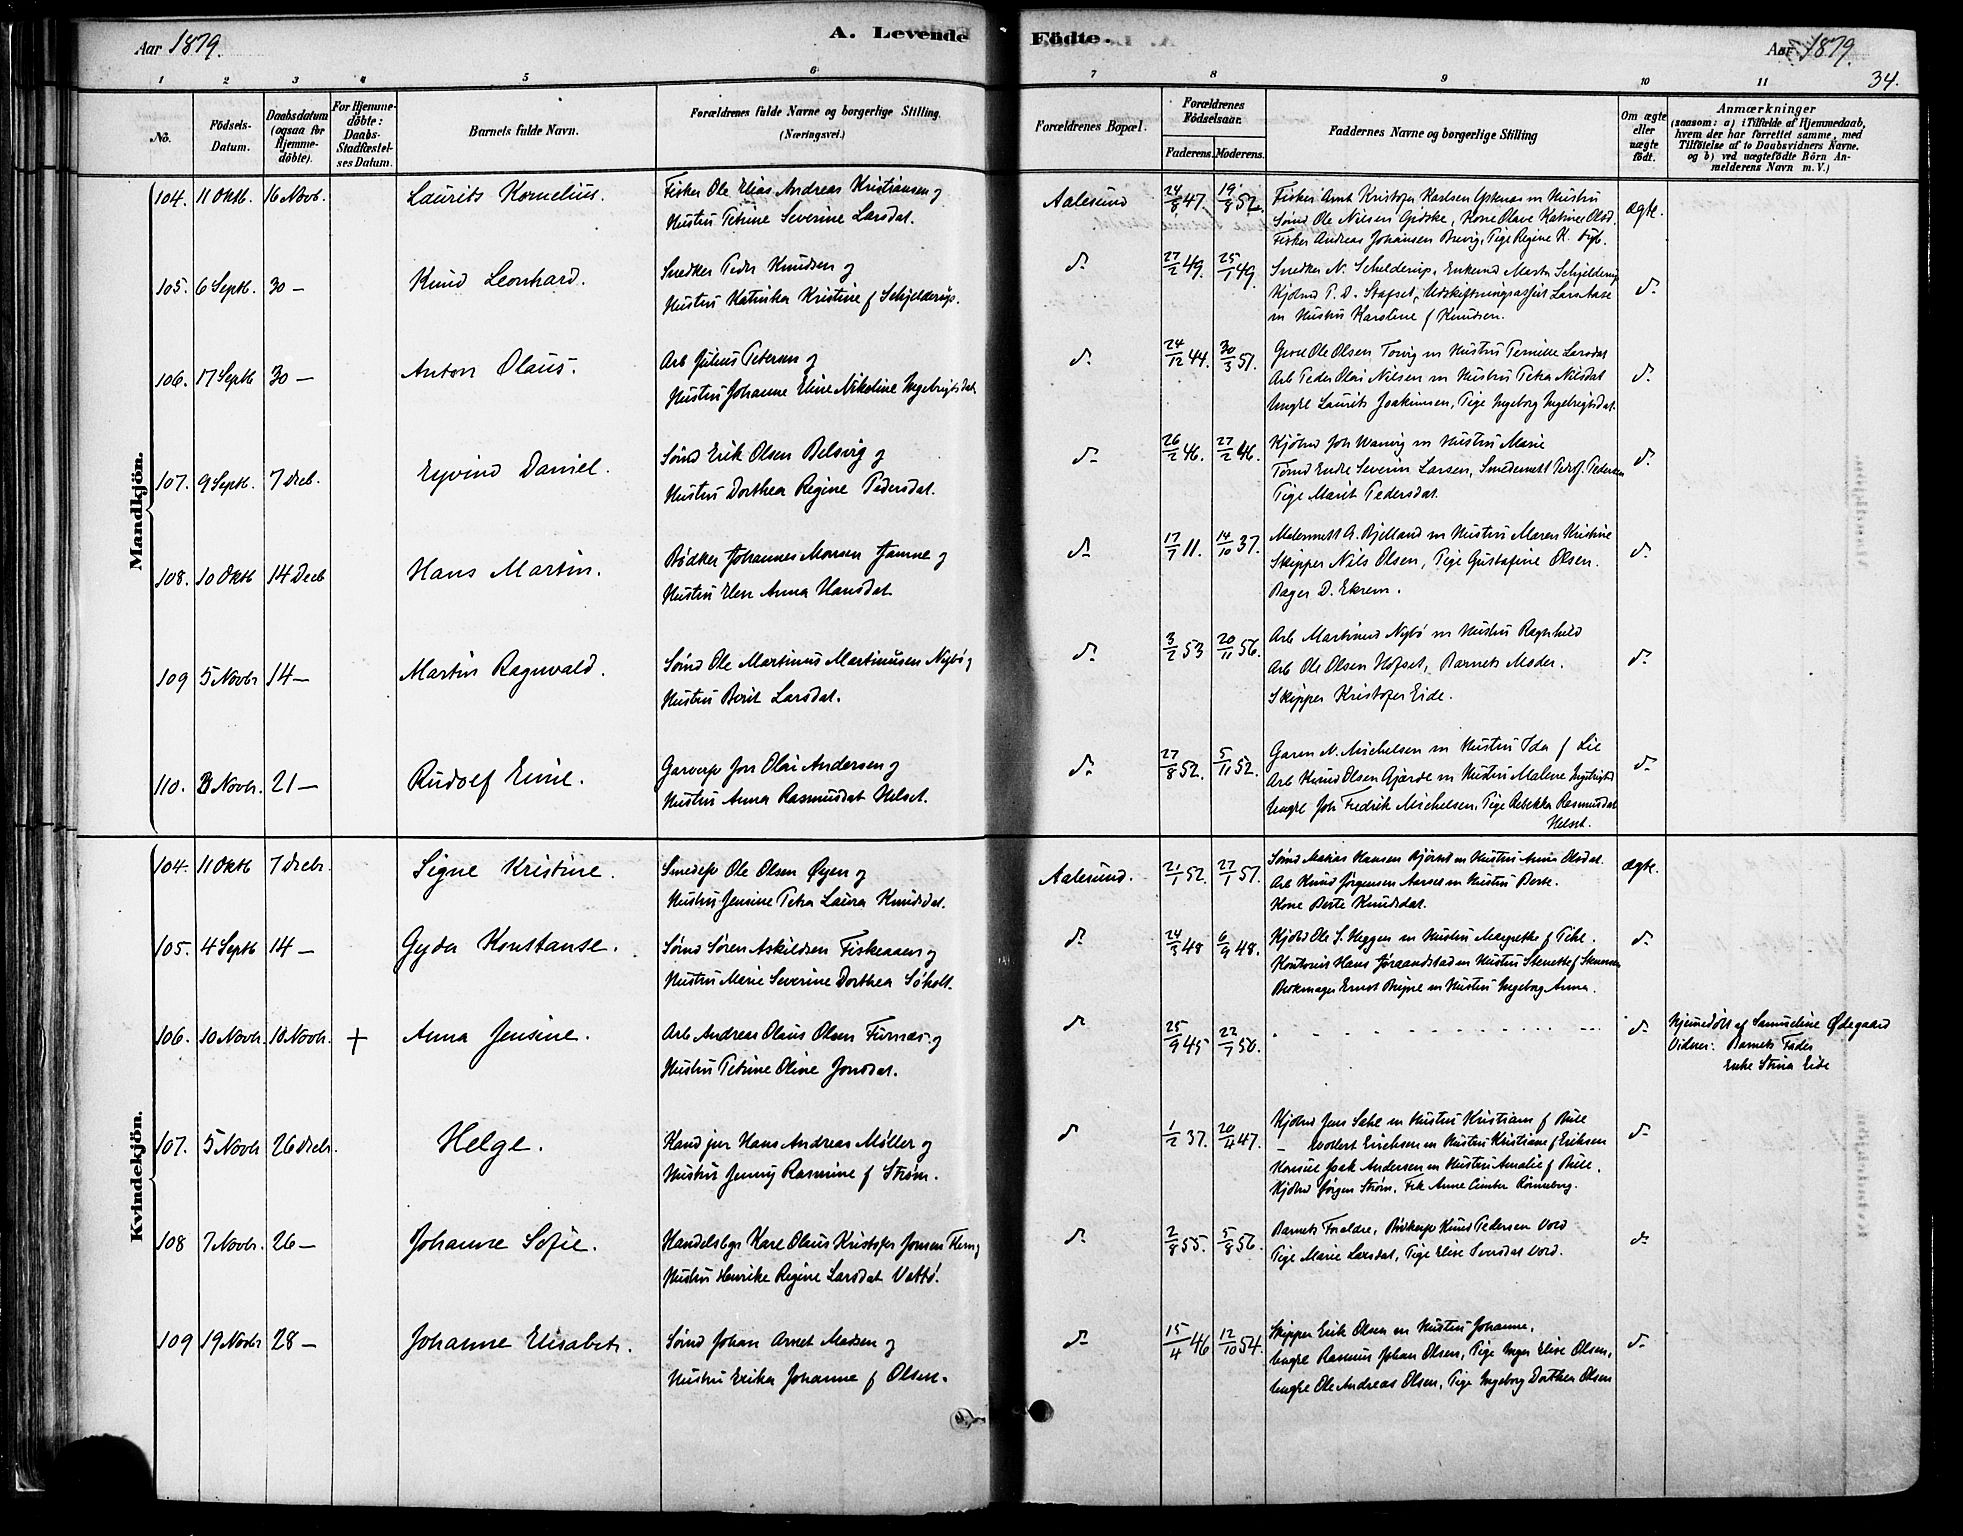 Aar 1879.
A. Levende
Födte.
Aar 1879.
34.
1 2 3 4 5 6 7 8 9 10 11
No.
Födsels-Datum.
Daabsdatum (ogsaa for Hjemme-döbte).
For Hjemme-döbte: Daabs-Stadfæstel-ses Datum.
Barnets fulde Navn.
Forældrenes fulde Navne og borgerlige Stilling.
(Næringsvei.)
Forældrenes Bopæl.
Forældrenes Födselsaar.
Faderens. Moderens.
Faddernes Navne og borgerlige Stilling
Om ægte eller uægte födt.
Anmærkninger
(saasom: a) i Tilfælde af Hjemmedaab,
hvem der har forrettet samme, med
Tilföielse af to Daabsvidners Navne.
og b) ved uægtefödte Börn An-
melderens Navn m. V.)
Mandkjön.
104. 11 Oktb. 16 Novb. Laurits Kornelius. Fisker Ole Elias Andreas Kristiansen og
Hustru Petrine Severine Larsdat.
Aalesund 24/8 47. 19/8 52. Fisker Arnt Kristofer Karlsen m Hustru
Sömd Ole Nilsen Gidske, Kone Olave Katrine Olsd.
Fisker Andreas Johansen Brevig, Pige Regine K. ægte.
105. 6 Septb. 30 — Knud Leonhard. Snedker Peder Knudsen og
Hustru Katinka Kristine f Schjelderup.
do 27/2 49. 25/1 49. Snedker N. Schelderup, Enkemd Martin Schjelderup
Kjobmd P. D. Stafset, Udskiftningsassist Lars Aase
m Hustru Karoline f Knudsen. do
106. 17 Septb 30 — Anton Olaus. Arb Julius Petersen og
Hustru Johanne Eline Nikoline Ingebrigtsdat
do 24/12 44. 30/3 51. Ole Olsen Torvig m Hustru Pernille Larsdat
Arb Peder Olai Nilsen m Hustru Petra Nilsdat
Ungkl Laurits Joakimsen, Pige Ingeborg Ingebrigtsdat. do
107. 9 Septb. 7 Dcb. Eyvind Daniel. Sömd Erik Olsen Belsvig og
Hustru Dorthea Regine Pedersdat.
do 26/2 46. 27/2 46. Kjöbmd Joh Wannig m Hustru Marie
Tömd Endre Severin Larsen, Smedemst Pedersen
Pige Marit Pedersdat. do
108. 10 Oktb 14 Dceb Hans Martin. Bödker Johannes Monsen Jamne og
Hustru Elen Anna Hansdat.
do 17/7 11. 14/10 37. Malermst A. Bjelland m Hustru Maren Kristine
Skipper Nils Olsen, Pige Gustafine Olsen.
Bager D. Ekrem. do
109 5 Novbr 14 — Martin Ragnvald. Sömd Ole Martinus Martinussen Nybö og
Hustru Berit Larsdat.
do 3/2 53 20/11 56. Arb Martinus Nybö m Hustru Ragnhild
Arb Ole Olsen Hofset, Barnets Moder.
Skipper Kristofer Eide. do
110. 3 Novbr. 21 — Rudolf Emil. Garversv Jon Olai Andersen og
Hustru Anna Rasmusdat Helset.
do 27/8 52. 5/11 52. Garver N. Michelsen m Hustru Ida f Lie
Arb Knud Olsen Gjærde m Hustru Malene Ingebrigtsd
Ungkl Joh Fredrik Michelsen, Pige Rebekka Rasmusdat
Helset. do
Kvindekjön.
104. 11 Oktb 7 Dcebr. Signe Kristine. Smedesv Ole Olsen Øyen og
Hustru Jensine Petra Laura Knudsdat.
Aalesund. 21/1 52. 27/1 57. Sömd Matias Hansen m Hustru Anna Olsdat.
Arb Knud Jörgensen Aarset m Hustru Berte.
Kone Berte Knudsdat. ægte.
105. 4 Septb 14 — Gyda Konstanse. Sömd Sören Askildsen Fiskeaaen og
Hustru Marie Severine Dorthea Söholt.
do 24/3 48 6/9 48. Kjobmd Ole S. Heggen m Hustru Margrethe f Pihl.
Kontorist Hans m Hustru Stenette f
Bokmager Ernst m Hustru Ingeborg Anna. do
106. 10 Novbr. 10 Novbr. + Anna Jensine. Arb Andreas Olaus Olsen Furnæs og
Hustru Petrine Oline Jonsdat.
do 25/9 45 22/7 50. do Hjemedöbt af Samueline Ødegaard
Vidner: Barnets Fader
Enke Stina Eide
107. 5 Novbr 26 Dcebr. Helge. Kand jur Hans Andreas Møller og
Hustru Jenny Rasmine f Strøm.
do 1/2 37. 20/4 47. Kjobmd Jens Sahl m Hustru Kristiane f Bull
— Erichsen m Hustru Kristiane f Eriksen
Konsul Joak Andersen m Hustru Amalie f Bull,
Kjobmd Jørgen Strøm, Frk Anne Cimber Rönneberg. do
108 7 Novbr. 26 — Johanne Sofie. Handelsbgr Karl Olaus Kristofer Jonsen og
Hustru Henrike Regine Larsdat Vattö.
do 2/8 55. 5/8 56. Barnets Foraldre, Bödkersv Knud Pedersen Vold
Pige Marie Larsdat, Pige Elise Vold. do
109 19 Novbr 28 — Johanne Elisabet. Sömd Johan Arnet Madsen og
Hustru Erika Johanne f Olsen.
do 15/4 46 12/10 54. Skipper Erik Olsen m Hustru Johanne,
Ungkl Rasmus Johan Olsen, Pige Inger Elise Olsen,
Ungkl Ole Andreas Olsen, Pige Ingeborg Dorthea Olsen do